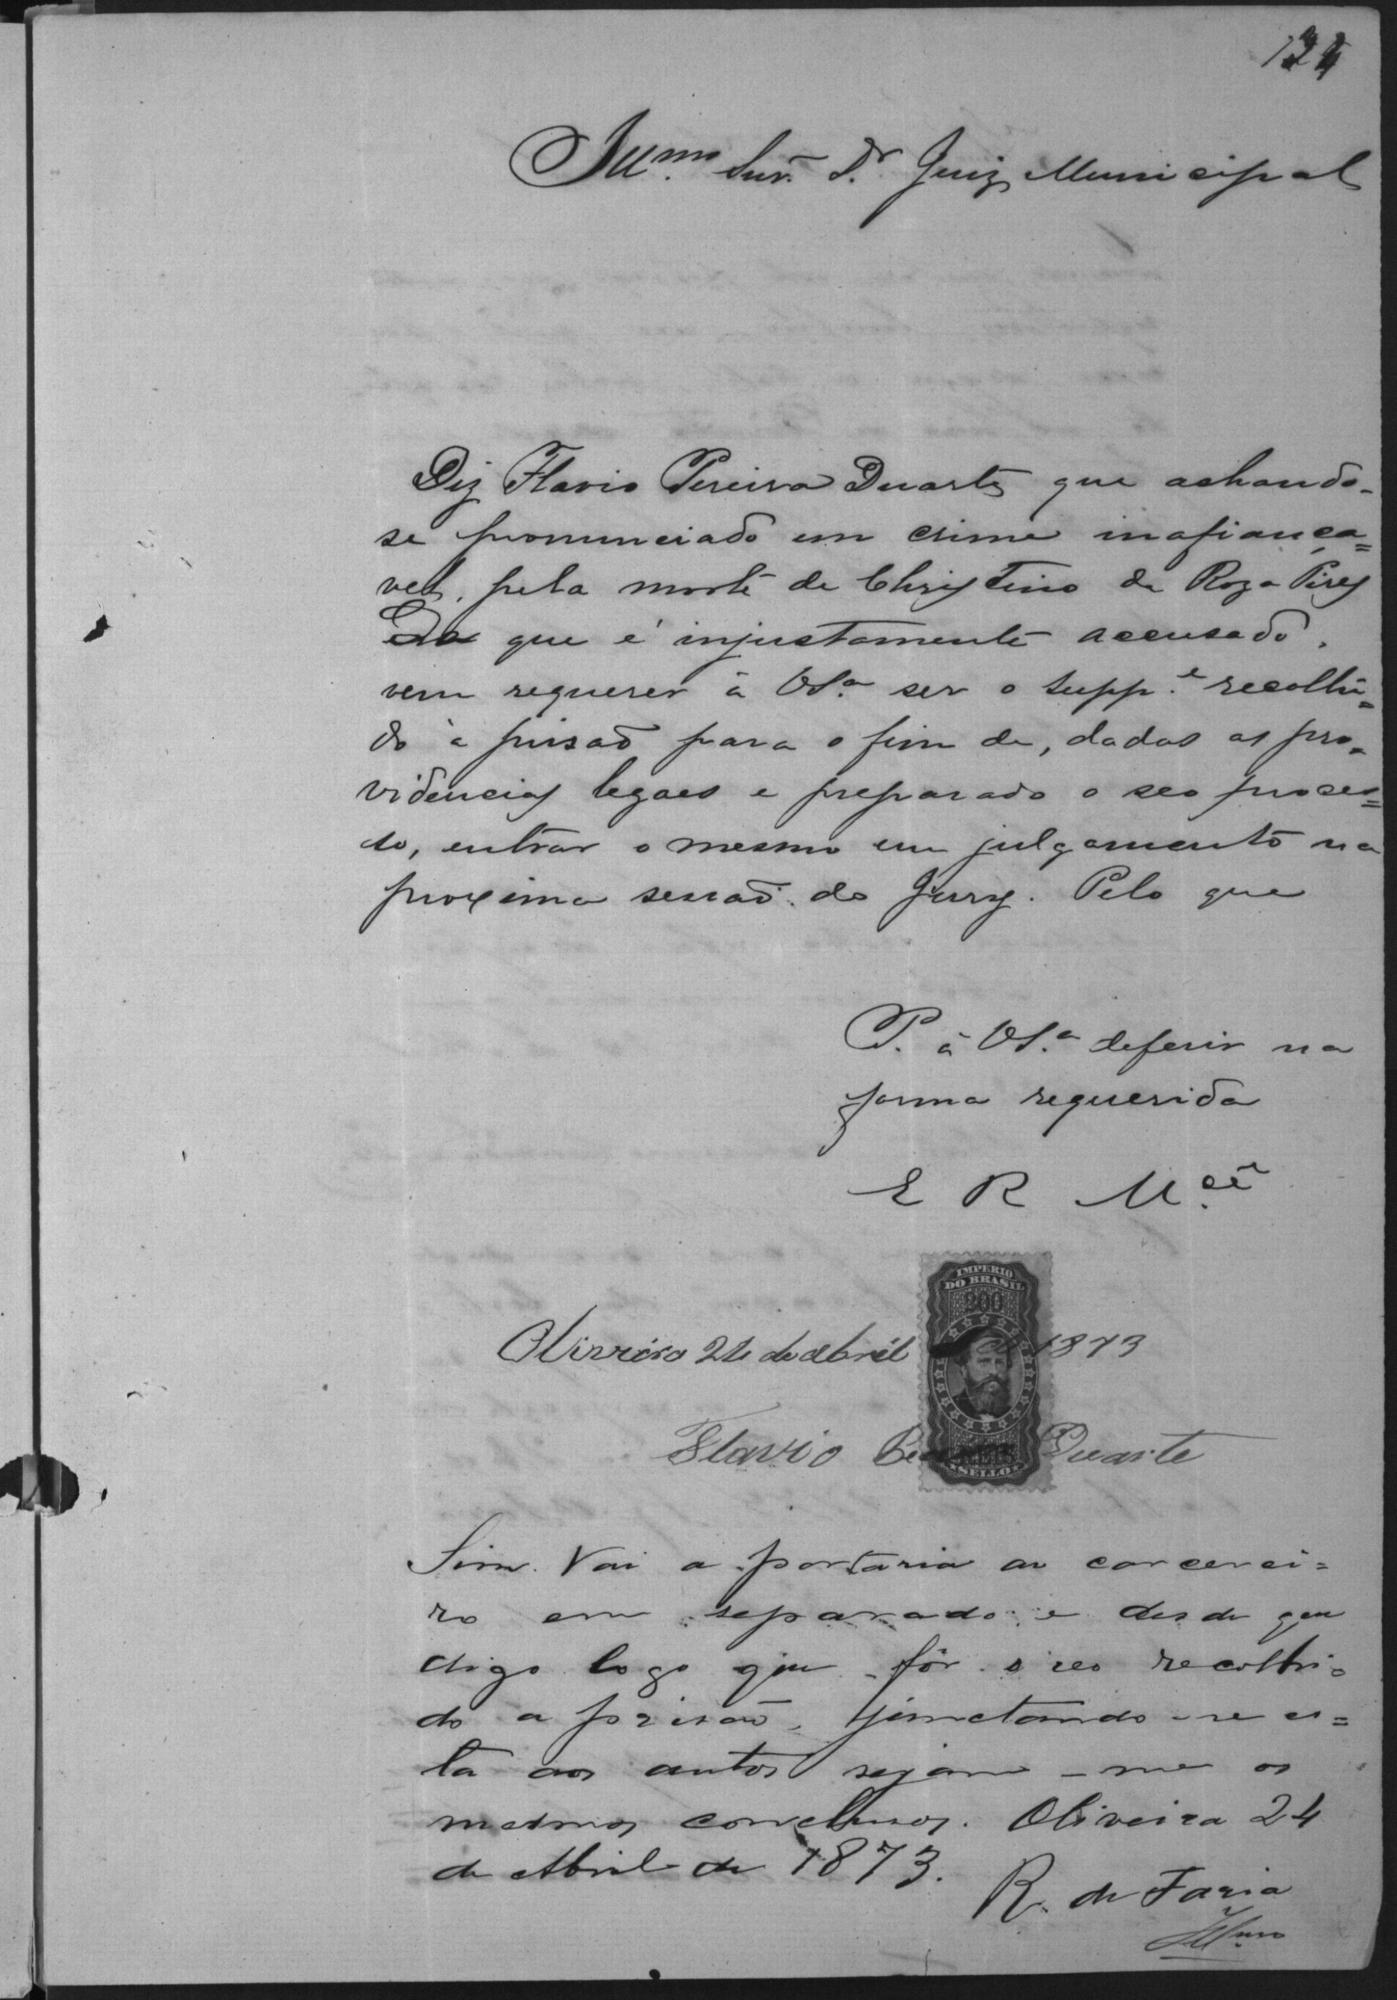 124
Illmo. Snr. Dr. Juiz Municipal
Diz Flavio Pereira Duarte que achando-
se pronunciado em crime inafiança=
vel, pela morte de Christino da Roza Pires
que é injustamente accusado,
vem requerer á VSa. ser o suppe. recolhi=
do á prisão para o fim de, dadas as pro=
videncias legaes e preparado o seo proces=
so, entrar o mesmo em julgamento na
proxima sessão do Jury. Pelo que
P. á VSa. deferir na
forma requerida
E R Mce.
IMPERIO
DO BRASIL
200
Oliveira 24 de abril de 1873
Flavio Pereira Duarte
SELLO
Sim. Vai a portaria ao carcerei=
ro em separado e desde que
digo logo que fôr o reo recolhi=
do a prisão, junctando-se es=
ta aos autos sejam-me os
mesmos conclusos. Oliveira 24
de Abril de 1873.
R. de Faria